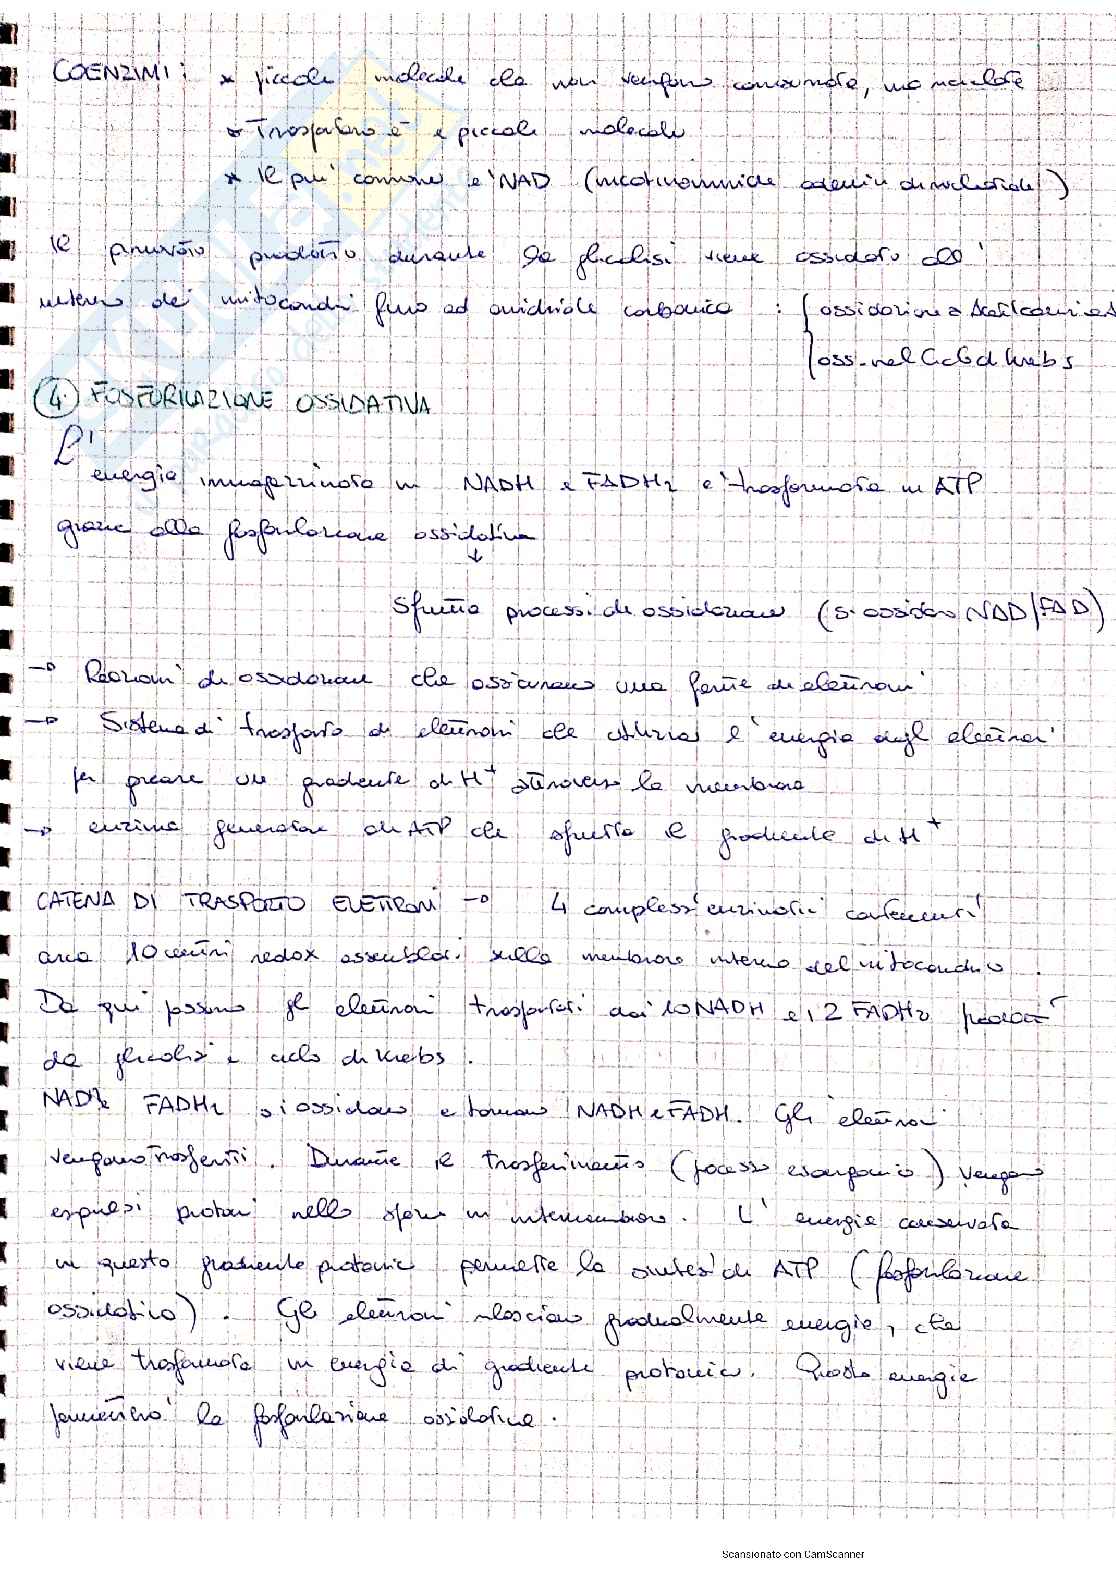 COENZIMI: * piccole molecole che non vengono consumate, ma riciclate
* Trasportano e⁻ e piccole molecole
* Il più comune è NAD (nicotinammide adenin dinucleotide)
Il piruvato prodotto durante la glicolisi viene ossidato all'
interno dei mitocondri fino ad anidride carbonica : { ossidazione a Acetilcoenzima A
oss. nel Ciclo di Krebs
4. FOSFORILAZIONE OSSIDATIVA
L'
energia immagazzinata in NADH e FADH2 e' trasformata in ATP
grazie alla fosforilazione ossidativa
↓
Sfrutta processi di ossidazione (si ossidano NAD/FAD)
→ Reazioni di ossidazione che assicurano una fonte di elettroni
→ Sistema di trasporto di elettroni che utilizza l'energia degli elettroni
per creare un gradiente di H⁺ attraverso la membrana
→ enzima generatore di ATP che sfrutta il gradiente di H⁺
CATENA DI TRASPORTO ELETTRONI → 4 complessi enzimatici contenenti
circa 10 centri redox assemblati sulla membrana interna del mitocondrio.
Da qui passano gli elettroni trasportati dai 10 NADH e i 2 FADH2 prodotti
da glicolisi e ciclo di Krebs.
NADH e FADH2 si ossidano e tornano NADH e FADH. Gli elettroni
vengono trasferiti. Durante il trasferimento (processo esoergonico) vengono
espulsi protoni nello spazio intermembrana. L'energia conservata
in questo gradiente protonico permette la sintesi di ATP (fosforilazione
ossidativa). Gli elettroni rilasciano gradualmente energia, che
viene trasformata in energia di gradiente protonico. Questa energia
permetterà la fosforilazione ossidativa.
Scansionato con CamScanner